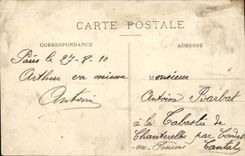 CARTE POSTALE
CORRESPONDANCE
ADRESSE
Paris le 27-8-10
Arthur va mieux
Antoine
Monsieur
Antoine Barbat
à la Cabastie de
Chanterelles par Condat
en-Feniers Cantal